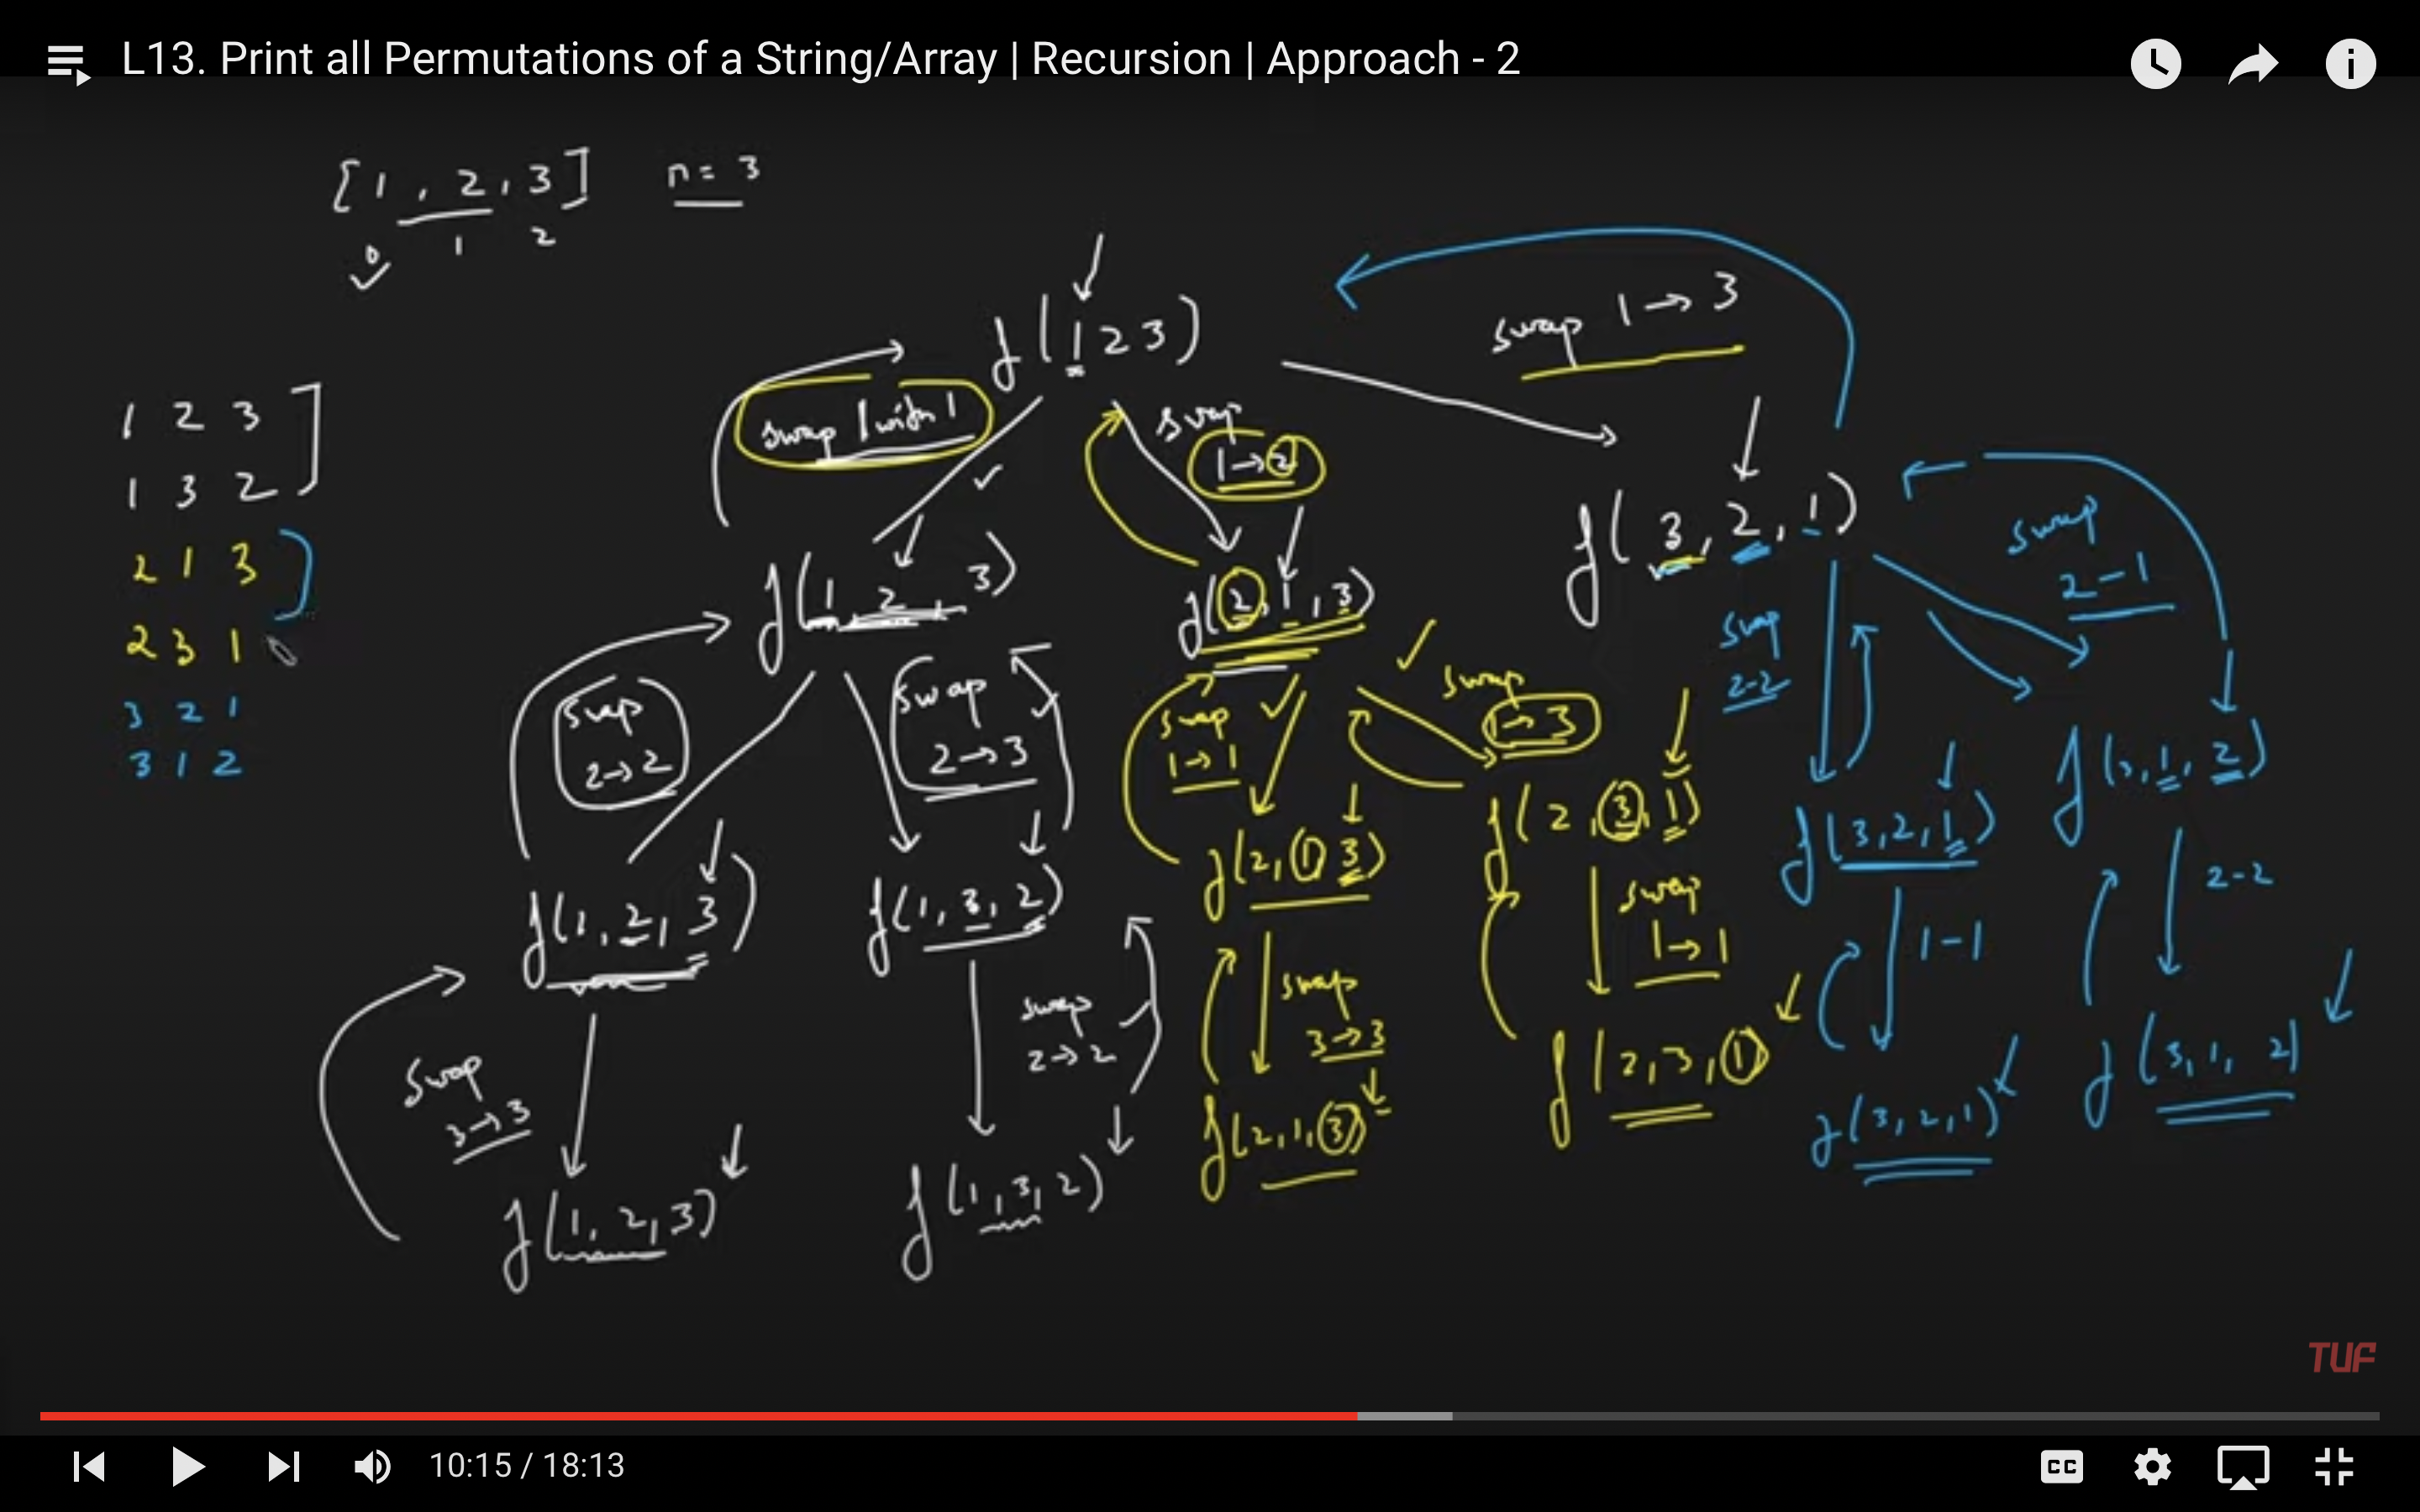 L13. Print all Permutations of a String/Array | Recursion | Approach - 2
[1, 2, 3] n = 3
0 1 2
f(1 2 3)
swap 1 → 3
swap 1 with 1
swap
1 → 2
1 2 3
1 3 2
2 1 3
2 3 1
3 2 1
3 1 2
f(1, 2, 3)
f(2, 1, 3)
f(3, 2, 1)
swap
2 - 1
swap
2 → 2
swap
2 → 3
swap
1 → 1
swap
1 → 3
swap
2-2
f(1, 2, 3)
f(1, 3, 2)
f(2, 1 3)
f(2, 3, 1)
f(3, 2, 1)
f(3, 1, 2)
swap
3 → 3
swap
2 → 2
swap
3 → 3
swap
1 → 1
1-1
2-2
f(1, 2, 3)
f(1, 3, 2)
f(2, 1, 3)
f(2, 3, 1)
f(3, 2, 1)
f(3, 1, 2)
TUF
10:15 / 18:13
CC